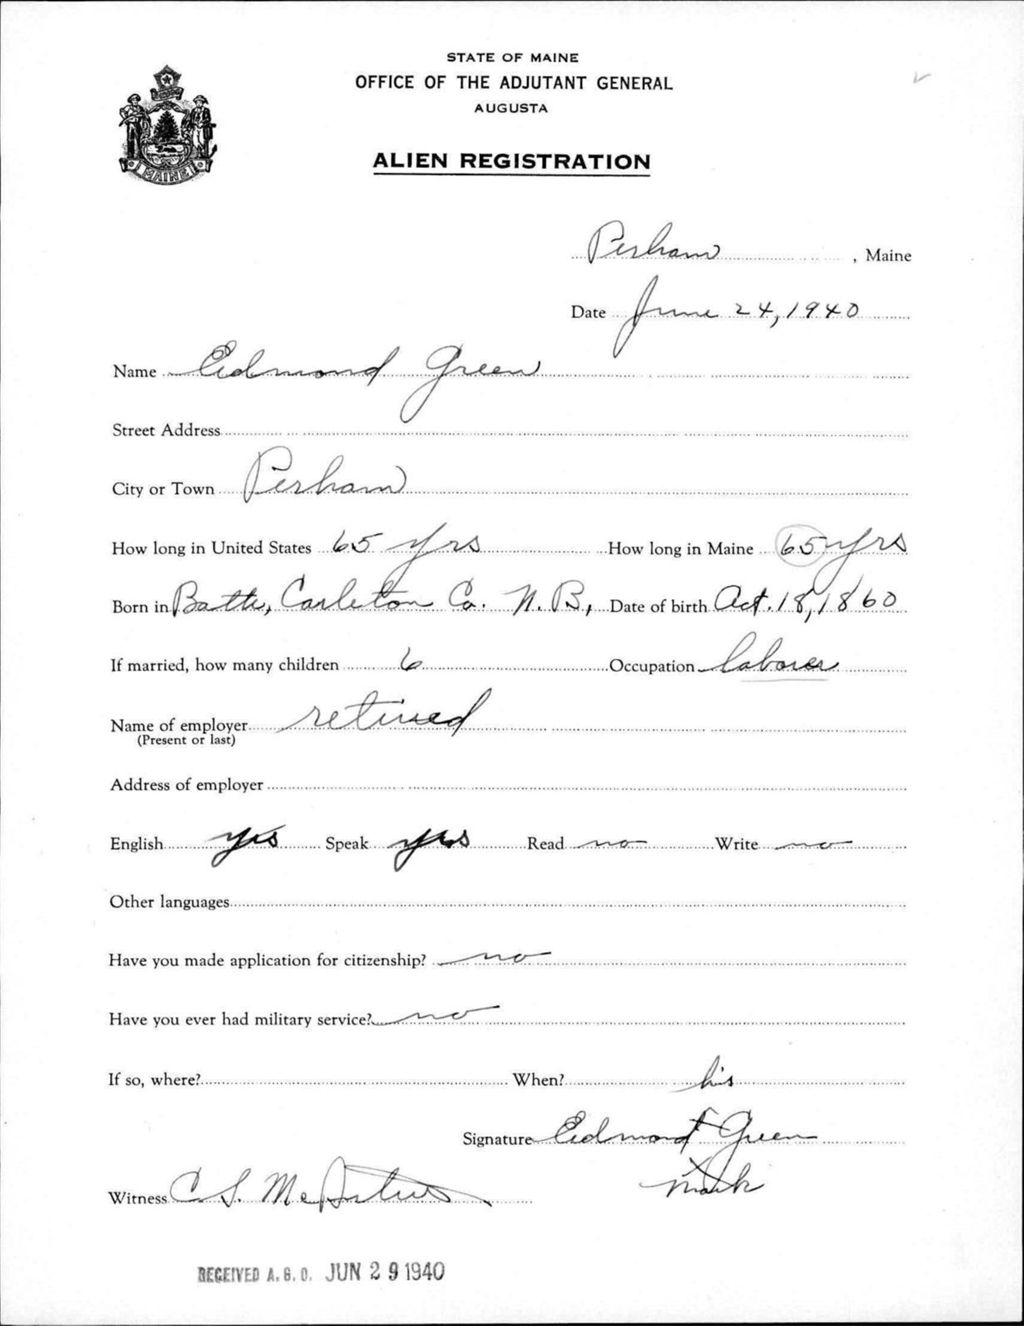 STATE OF MAINE
OFFICE OF THE ADJUTANT GENERAL
AUGUSTA
ALIEN REGISTRATION
MAINE
Perham, Maine
Date June 24, 1940
Name Edmond Green
Street Address
City or Town Perham
How long in United States 65 yrs How long in Maine 65 yrs
Born in Carleton Co. N.B., Date of birth Oct. 18, 1860
If married, how many children 6 Occupation laborer
Name of employer retired
(Present or last)
Address of employer
English yes Speak yes Read no Write no
Other languages
Have you made application for citizenship? no
Have you ever had military service? no
If so, where? When? his
Signature Edmond Green
mark
Witness C S
RECEIVED A. G. O. JUN 29 1940